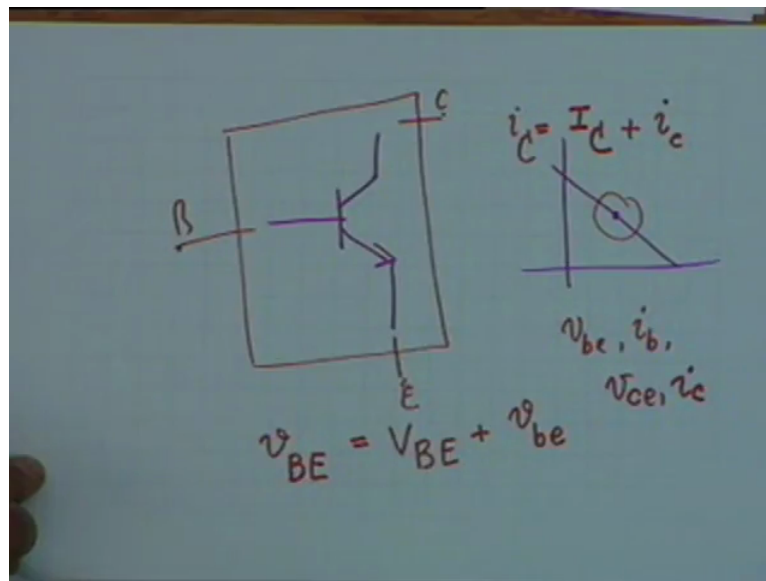 C
i_C = I_C + i_c
B
v_be, i_b,
v_ce, i_c
E
v_BE = V_BE + v_be